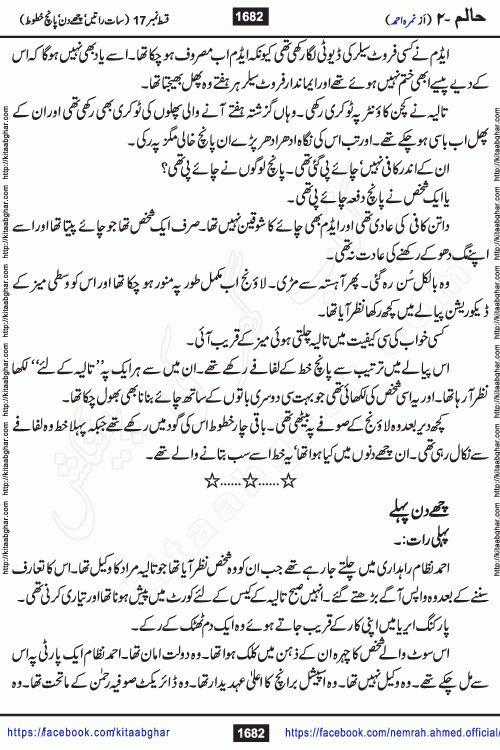 حالم -۲ (از نمرہ احمد) 1682 قسط نمبر 17 (سات راتیں، چھے دن، پانچ خطوط)
ایڈم نے کسی فروٹ سیلر کی ڈیوٹی لگا رکھی تھی کیونکہ ایڈم اب مصروف ہو چکا تھا۔ اسے یاد بھی نہیں ہوگا کہ اس
کے دیے پیسے ابھی ختم نہیں ہوئے تھے اور ایماندار فروٹ سیلر ہر ہفتے وہ پھل بھیجتا تھا۔
تالیہ نے کچن کاؤنٹر پہ ٹوکری رکھی۔ وہاں گزشتہ ہفتے آنے والی پھلوں کی ٹوکری بھی رکھی تھی اور ان کے
پھل اب باسی ہو چکے تھے۔ اور تب اس کی نگاہ ادھر ادھر پڑے ان پانچ خالی مگز پہ رکی۔
ان کے اندر کافی نہیں، چائے پی گئی تھی۔ پانچ لوگوں نے چائے پی تھی؟
یا ایک شخص نے پانچ دفعہ چائے پی تھی۔
داتن کافی کی عادی تھی اور ایڈم بھی چائے کا شوقین نہیں تھا۔ صرف ایک شخص تھا جو چائے پیتا تھا اور اسے
اپنے مگ دھو کے رکھنے کی عادت نہ تھی۔
وہ بالکل سُن رہ گئی۔ پھر آہستہ سے مڑی۔ لاؤنج اب مکمل طور پہ منور ہو چکا تھا اور اس کو وسطی میز کے
ڈیکوریشن پیالے میں کچھ رکھا نظر آیا تھا۔
کسی خواب کی سی کیفیت میں تالیہ چلتی ہوئی میز کے قریب آئی۔
اس پیالے میں ترتیب سے پانچ خط کے لفافے رکھے تھے۔ ان میں سے ہر ایک پہ ”تالیہ کے لئے“ لکھا
نظر آ رہا تھا۔ اور یہ اسی شخص کی لکھائی تھی جو بہت سی دوسری باتوں کے ساتھ چائے بنانا بھی بھول چکا تھا۔
کچھ دیر بعد وہ لاؤنج کے صوفے پہ بیٹھی تھی۔ باقی چار خطوط اس کی گود میں رکھے تھے جبکہ پہلا خط وہ لفافے
سے نکال رہی تھی۔ ان چھے دنوں میں کیا ہوا تھا، یہ خط اسے سب بتانے والے تھے۔
☆......☆......☆
چھے دن پہلے
پہلی رات:۔
احمد نظام راہداری میں چلتے جا رہے تھے جب ان کو وہ شخص نظر آیا تھا جو تالیہ مراد کا وکیل تھا۔ اس کا تعارف
سننے کے بعد وہ واپس آگے بڑھتے گئے۔ انہیں صبح تالیہ کے کیس کے لئے کورٹ میں پیش ہونا تھا اور تیاری کرنی تھی۔
پارکنگ ایریا میں اپنی کار کے قریب جاتے ہوئے وہ ایک دم ٹھٹک کے رکے۔
اس سوٹ والے شخص کا چہرہ ان کے ذہن میں کلک ہوا تھا۔ وہ دولت امان تھا۔ احمد نظام ایک پارٹی پہ اس
سے مل چکے تھے۔ وہ وکیل نہیں تھا۔ وہ اسپیشل برانچ کا اعلیٰ عہدیدار تھا۔ وہ ڈائریکٹ صوفیہ رحمٰن کے ماتحت تھا۔ وہ
https://facebook.com/kitaabghar 1682 https://facebook.com/nemrah.ahmed.official/
http://kitaabghar.com http://kitaabghar.com http://kitaabghar.com http://kitaabghar.com